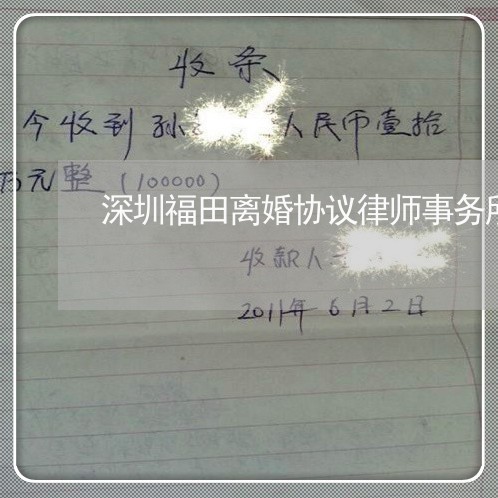 收条
今收到孙 人民币壹拾
万元整（100000）
深圳福田离婚协议律师事务所
收款人
2011年6月2日